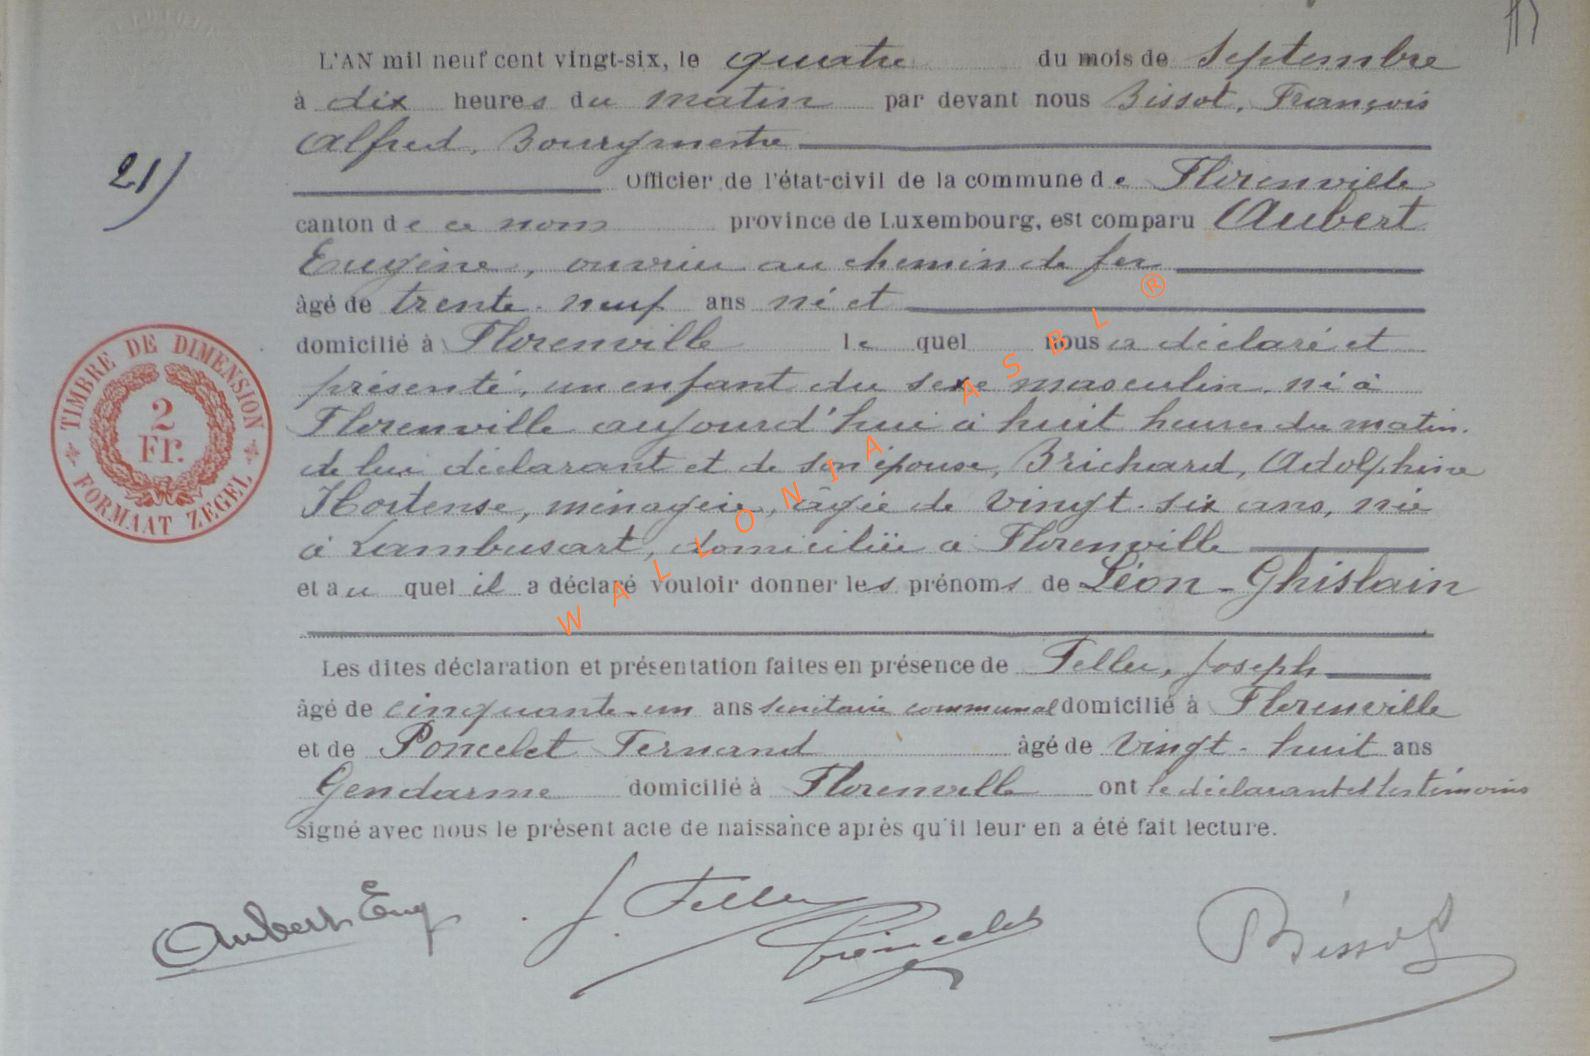 L'AN mil neuf cent vingt-six, le quatre du mois de Septembre
à dix heures du matin par devant nous Bissot, François
Alfred, Bourgmestre
21)
Officier de l'état-civil de la commune de Florenville
canton de ce nom province de Luxembourg, est comparu Aubert
Eugène, ouvrier au chemin de fer
âgé de trente-neuf ans né et
domicilié à Florenville le quel nous a déclaré et
présenté, un enfant du sexe masculin, né à
Florenville aujourd'hui à huit heures du matin.
de lui déclarant et de son épouse, Brichard, Adolphine
Hortense, ménagère, âgée de vingt-six ans, née
à Lambusart, domiciliée à Florenville
et au quel il a déclaré vouloir donner les prénoms de Léon-Ghislain
Les dites déclaration et présentation faites en présence de Feller, Joseph
âgé de cinquante-un ans secrétaire communal domicilié à Florenville
et de Poncelet Fernand âgé de vingt-huit ans
Gendarme domicilié à Florenville ont le déclarant et les témoins
signé avec nous le présent acte de naissance après qu'il leur en a été fait lecture.
Aubert Eug
J. Feller
Poncelet
Bissot
TIMBRE DE DIMENSION
2
Fr.
FORMAAT ZEGEL
WALLONIA ASBL ®